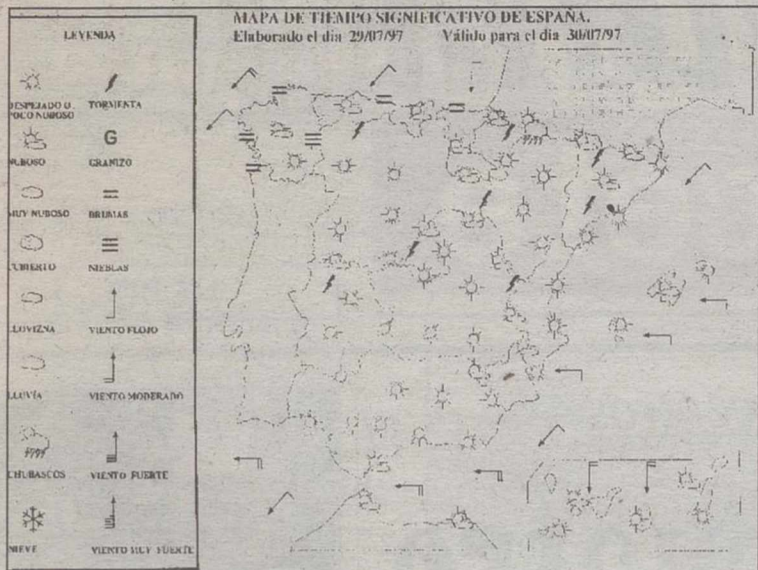 MAPA DE TIEMPO SIGNIFICATIVO DE ESPAÑA.
Elaborado el dia 29/07/97 Válido para el dia 30/07/97
LEYENDA
DESPEJADO U POCO NUBOSO
TORMENTA
NUBOSO
G
GRANIZO
MUY NUBOSO
BRUMAS
CUBIERTO
NIEBLAS
LLOVIZNA
VIENTO FLOJO
LLUVÍA
VIENTO MODERADO
CHUBASCOS
VIENTO FUERTE
NIEVE
VIENTO MUY FUERTE